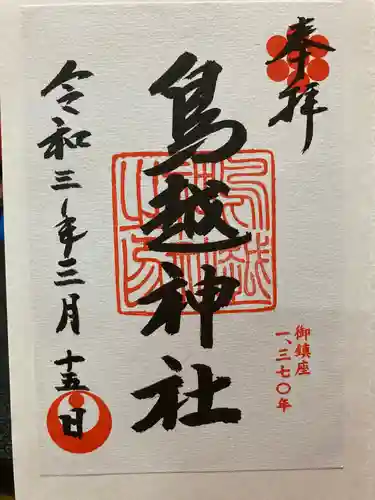 奉拝
鳥越神社
御鎮座
一、三七〇年
令和三年三月十五日